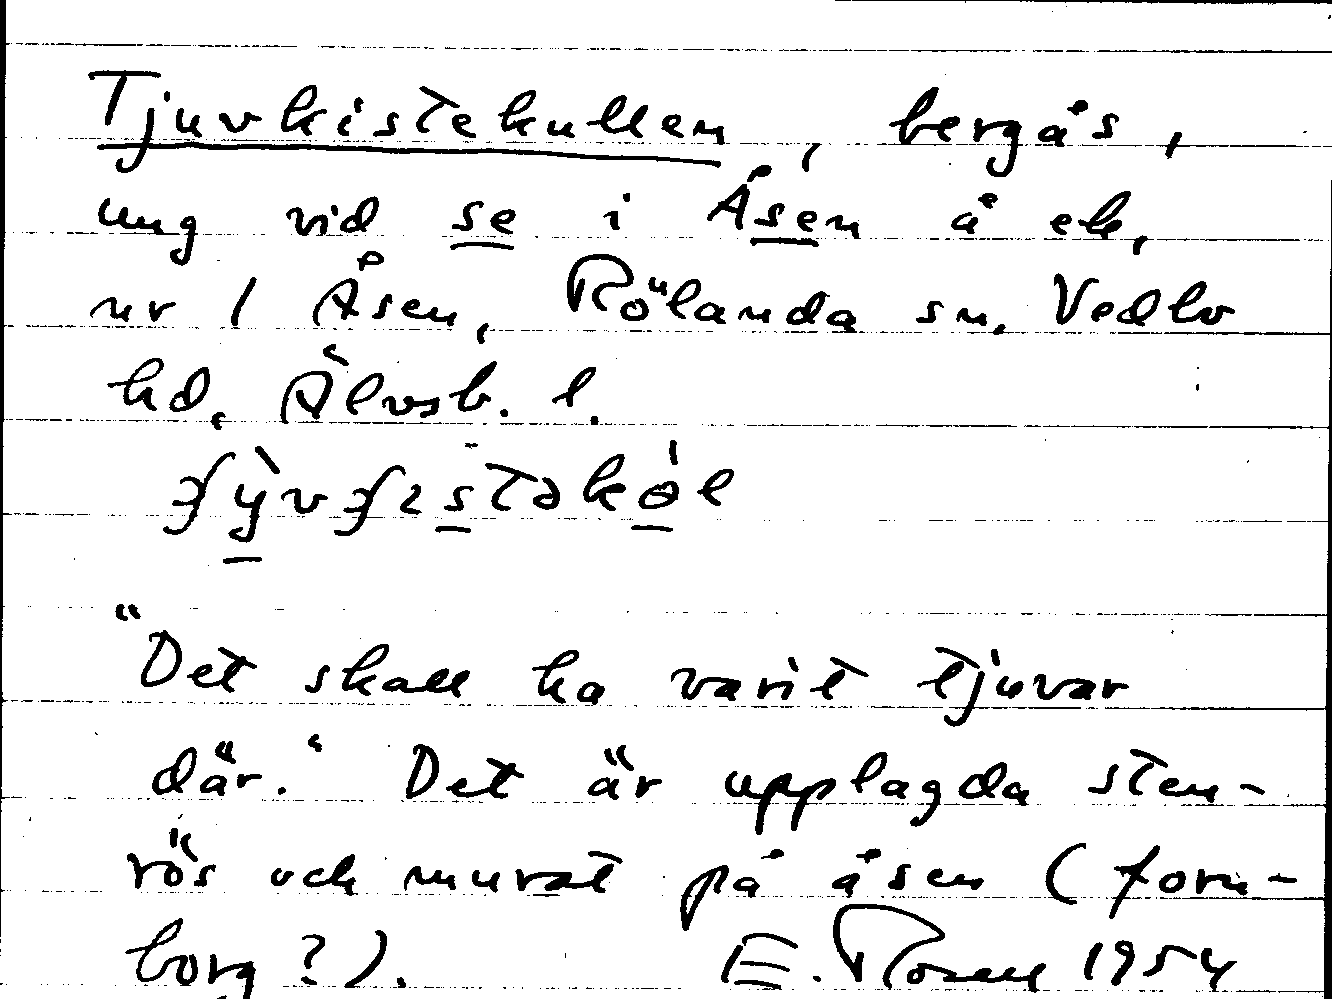 Tjuvkistekullen, bergås,
ung vid se i Åsen å ek,
nr 1 Åsen, Rölanda sn, Vedbo
hd, Älvsb. l.
"Det skall ha varit tjuvar
där." Det är upplagda sten-
rös och murat på åsen (forn-
borg?). E. Rosell 1954